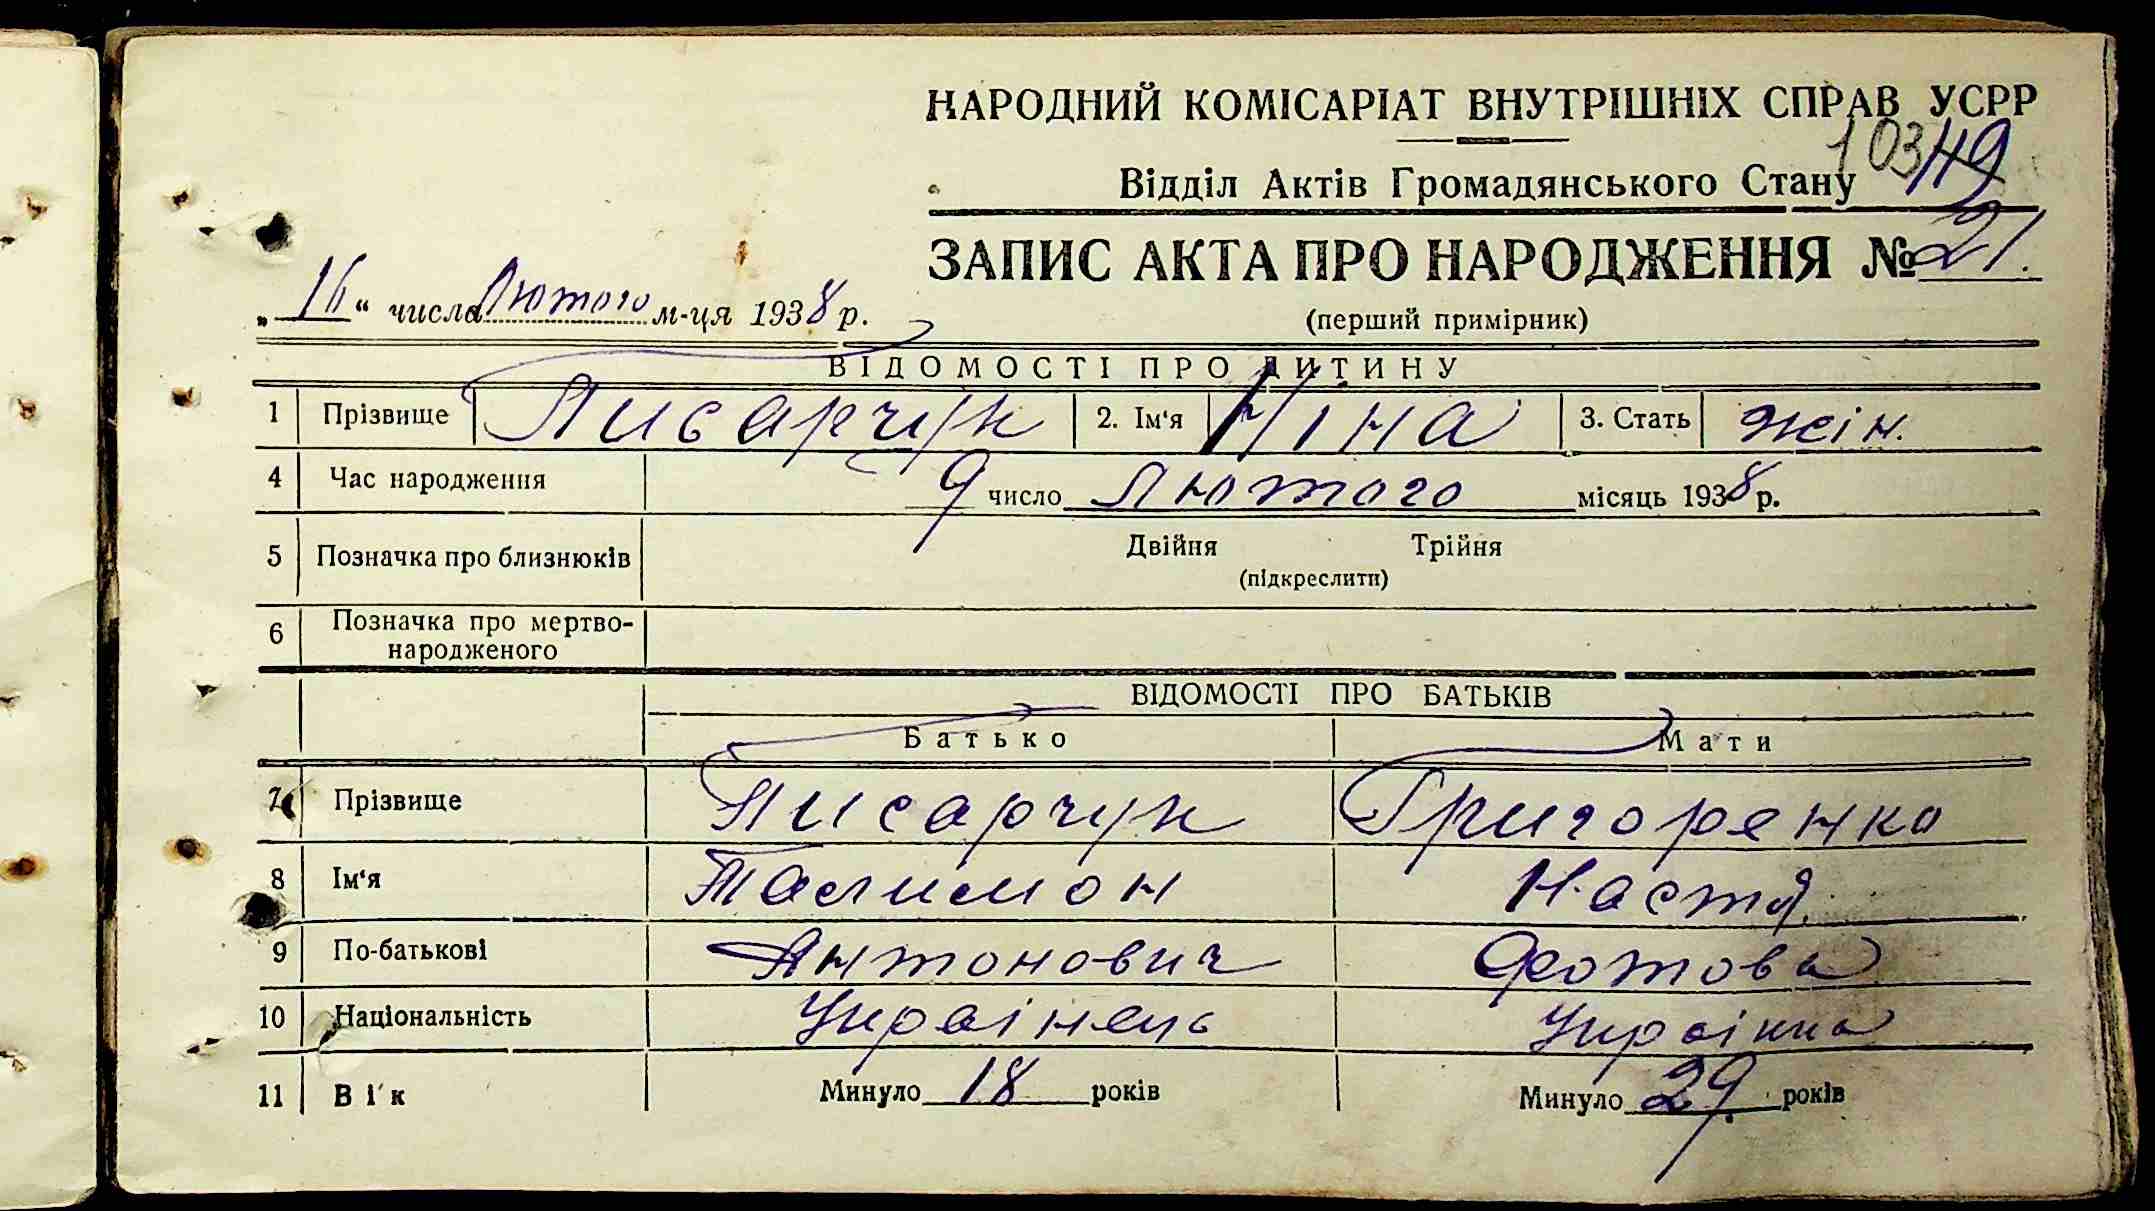 НАРОДНИЙ КОМІСАРІАТ ВНУТРІШНІХ СПРАВ УСРР
103 119
Відділ Актів Громадянського Стану
ЗАПИС АКТА ПРО НАРОДЖЕННЯ № 21.
„16“ числа Лютого м-ця 1938 р.
(перший примірник)
ВІДОМОСТІ ПРО ДИТИНУ
1 Прізвище Писарчук 2. Ім‘я Ніна 3. Стать жін.
4 Час народження 9 число Лютого місяць 1938 р.
5 Позначка про близнюків Двійня Трійня
(підкреслити)
6 Позначка про мертво-
народженого
ВІДОМОСТІ ПРО БАТЬКІВ
Батько Мати
7 Прізвище Писарчук Григоренко
8 Ім‘я Палимон Настя
9 По-батькові Антонович Фотова
10 Національність Украінець Украінка
11 Вік Минуло 18 років Минуло 29 років